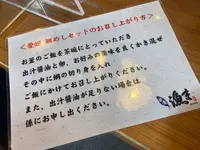 ＜愛媛 鯛めしセットのお召し上がり方＞
お釜のご飯を茶碗にとっていただき
出汁醤油と卵、お好みの薬味を良くかき混ぜ
その中に鯛の切り身を入れ
ご飯にかけてお召し上がりください。
また、出汁醤油が足りない場合は
係にお申し出ください。